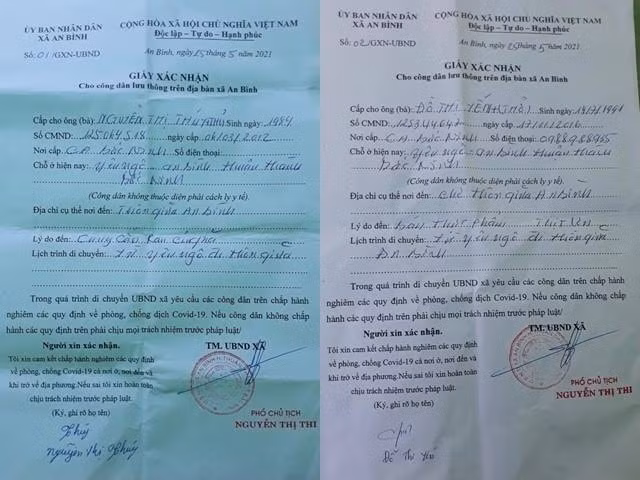 ỦY BAN NHÂN DÂN
XÃ AN BÌNH
CỘNG HÒA XÃ HỘI CHỦ NGHĨA VIỆT NAM
Độc lập – Tự do – Hạnh phúc
Số: 01/GXN-UBND
An Bình, ngày 25 tháng 5 năm 2021
GIẤY XÁC NHẬN
Cho công dân lưu thông trên địa bàn xã An Bình
Cấp cho ông (bà): NGUYỄN THỊ THUÝ Sinh ngày: 1984
Số CMND: 125064518 ngày cấp 06/03/2012
Nơi cấp: C.A Bắc Ninh Số điện thoại:
Chỗ ở hiện nay: Yên Ngô - An Bình Thuận Thành
Bắc Ninh
(Công dân không thuộc diện phải cách ly y tế).
Địa chỉ cụ thể nơi đến: Thôn Giữa An Bình
Lý do đến: Cung Cấp Rau
Lịch trình di chuyển: Từ Yên Ngô đi thôn giữa
Trong quá trình di chuyển UBND xã yêu cầu các công dân trên chấp hành
nghiêm các quy định về phòng, chống dịch Covid-19. Nếu công dân không chấp
hành các quy định trên phải chịu mọi trách nhiệm trước pháp luật/
Người xin xác nhận.
Tôi xin cam kết chấp hành nghiêm các quy định
về phòng, chống Covid-19 cả nơi ở, nơi đến và
khi trở về địa phương.Nếu sai tôi xin hoàn toàn
chịu trách nhiệm trước pháp luật.
(Ký, ghi rõ họ tên)
Thúy
Nguyễn Thị Thúy
TM. UBND XÃ
PHÓ CHỦ TỊCH
NGUYỄN THỊ THI
ỦY BAN NHÂN DÂN
XÃ AN BÌNH
CỘNG HÒA XÃ HỘI CHỦ NGHĨA VIỆT NAM
Độc lập – Tự do – Hạnh phúc
Số: 02/GXN-UBND
An Bình, ngày 25 tháng 5 năm 2021
GIẤY XÁC NHẬN
Cho công dân lưu thông trên địa bàn xã An Bình
Cấp cho ông (bà): ĐỖ THỊ YẾN Sinh ngày
Số CMND: ngày cấp 17/11/2016
Nơi cấp: C.A Bắc Ninh Số điện thoại: 0988988985
Chỗ ở hiện nay: Yên Ngô - An Bình Thuận Thành
Bắc Ninh
(Công dân không thuộc diện phải cách ly y tế).
Địa chỉ cụ thể nơi đến: Chợ thôn giữa An Bình
Lý do đến: Bán Thực Phẩm
Lịch trình di chuyển: Từ Yên Ngô đi thôn giữa
An Bình
Trong quá trình di chuyển UBND xã yêu cầu các công dân trên chấp hành
nghiêm các quy định về phòng, chống dịch Covid-19. Nếu công dân không chấp
hành các quy định trên phải chịu mọi trách nhiệm trước pháp luật/
Người xin xác nhận.
Tôi xin cam kết chấp hành nghiêm các quy định
về phòng, chống Covid-19 cả nơi ở, nơi đến và
khi trở về địa phương.Nếu sai tôi xin hoàn toàn
chịu trách nhiệm trước pháp luật.
(Ký, ghi rõ họ tên)
Đỗ Thị Yến
TM. UBND XÃ
PHÓ CHỦ TỊCH
NGUYỄN THỊ THI